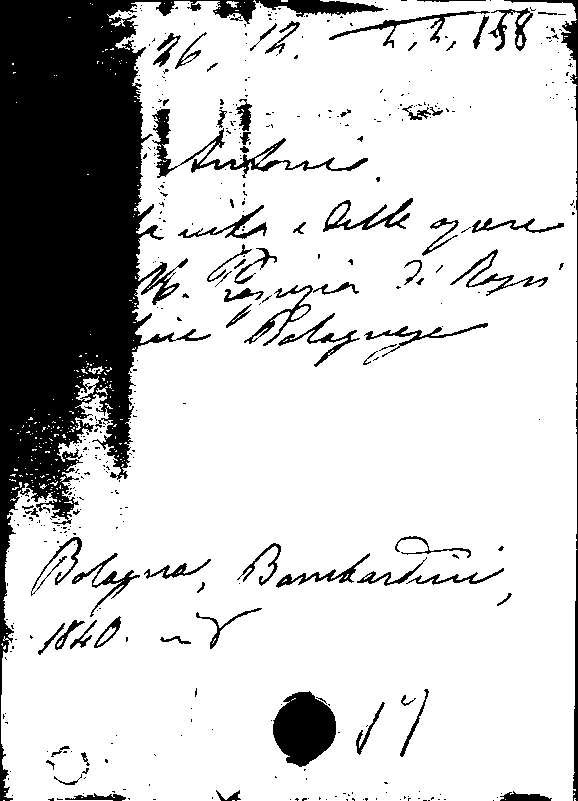 126, 12. 2, 2, 158
Antonio.
la vita e delle opere
M. Properzia di Rossi
Bolognese
Bologna, Bombardini,
1840. in 8
17